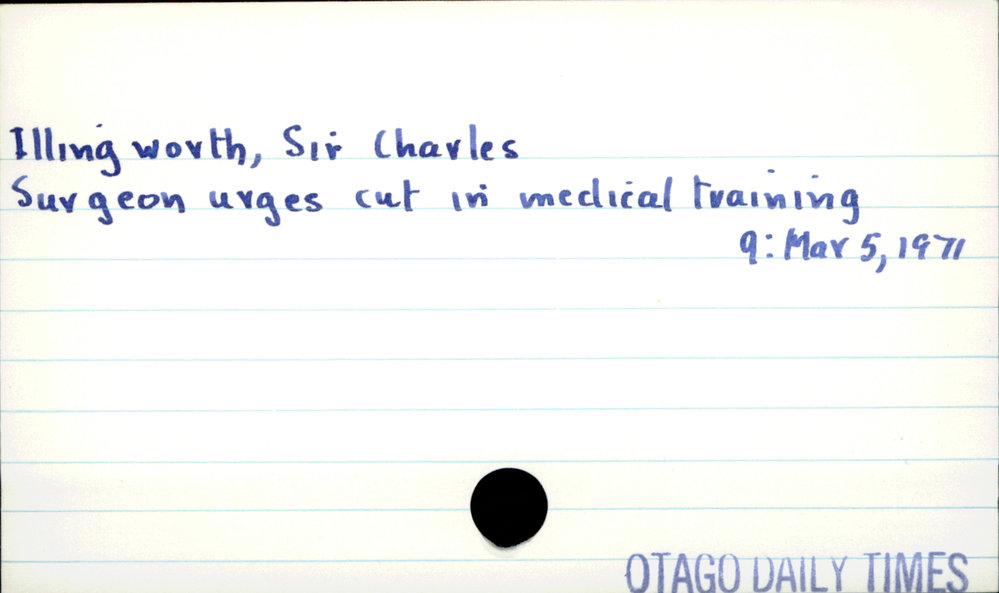 Illingworth, Sir Charles
Surgeon urges cut in medical training
9: Mar 5, 1971
OTAGO DAILY TIMES